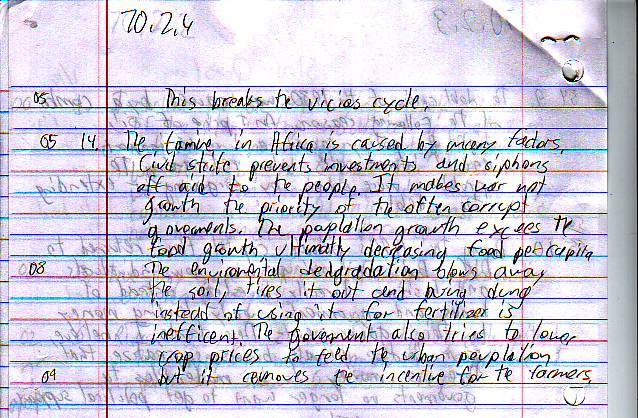 70.2.4
05 This breaks the vicios cycle.
05 14. The famine in Africa is caused by many factors.
Civil strife prevents investments and siphons
off aid to the people. It makes war not
growth the priority of the often corrupt
governments. The population growth excees the
food growth ultimatly decreasing food per capita
08 The enviromental dedgradation blows away
the soil, tires it out and buring dung
instead of using it for fertilizer is
inefficent. The goverment also tries to lower
crop prices to feed the urban peuplation
09 but it removes the incentive for the farmers.